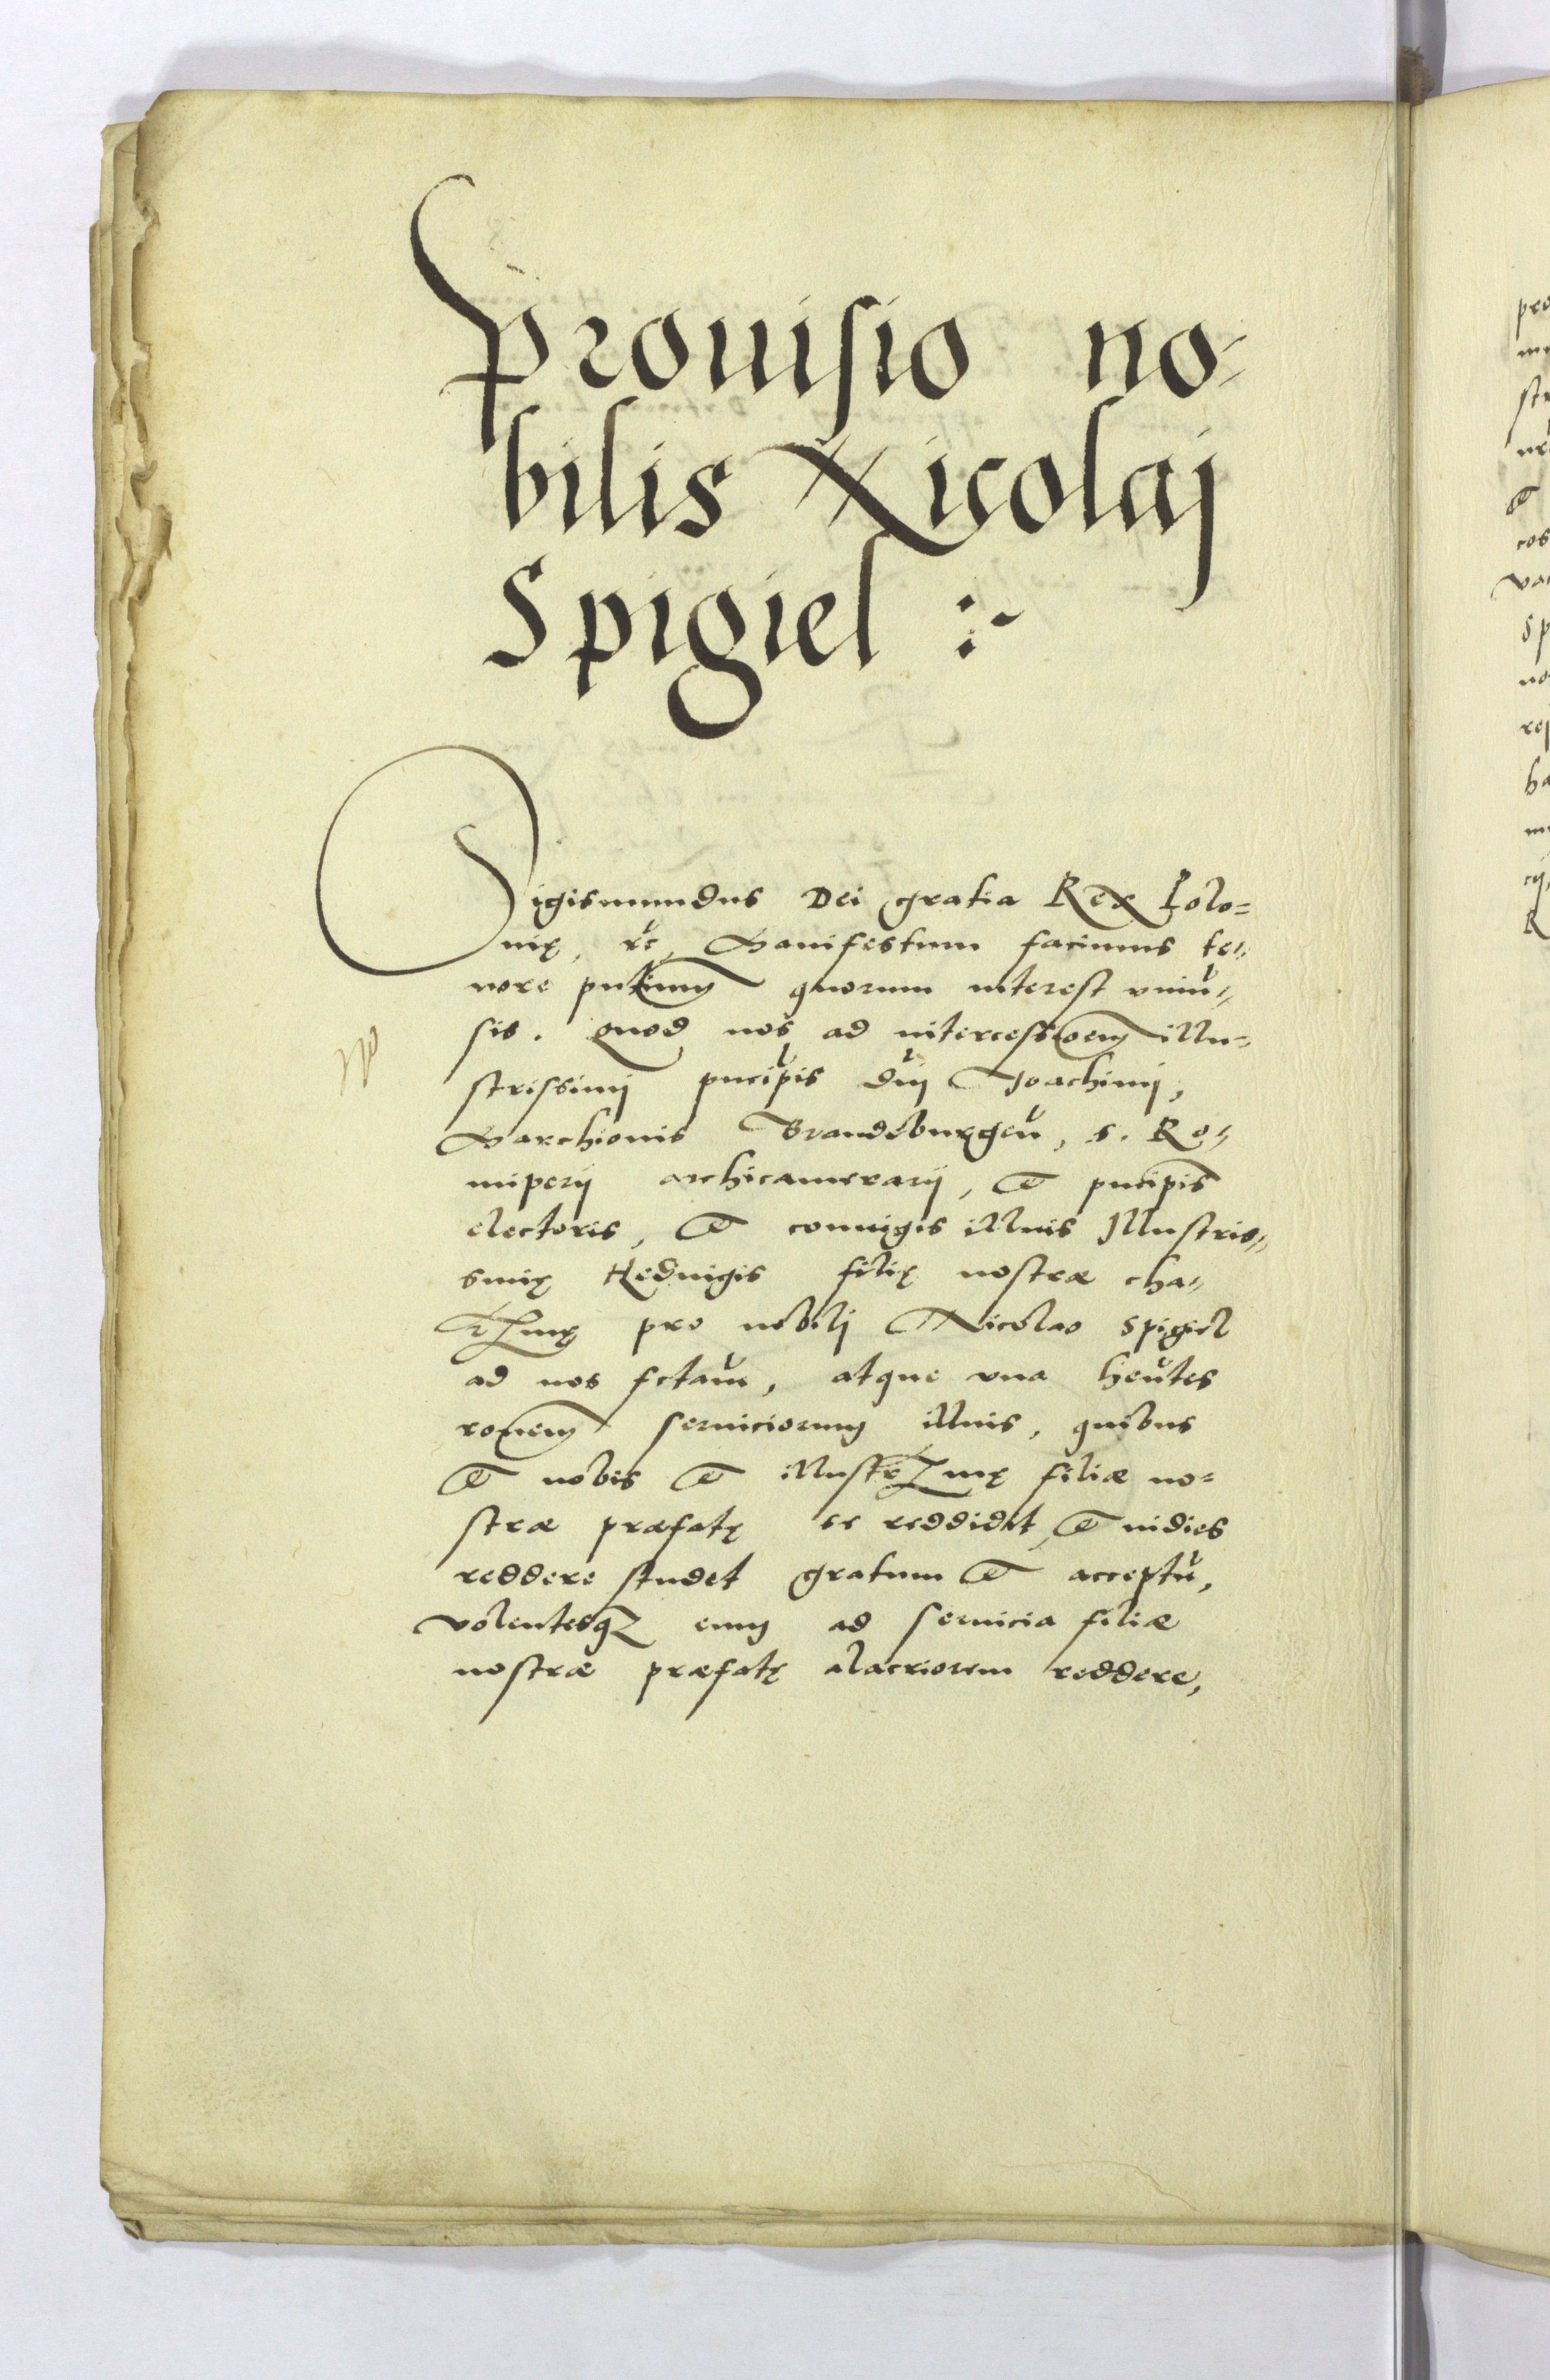 Prouisio no-
bilis Nicolaj
Spigiel :~
Sigismundus Dei gratia Rex Polo=
nię, &c, Manifestum facimus te-
nore pñtium quorum interest vniũ-
sis. Quod nos ad intercessioem illu-
strissimi pncĩpis dñi Joachimi,
Marchionis Brandeburgeñ, s. Ro-
imperij archicamerarij, et pncipis
electoris, et coniugis illius Jllustris-
simę Heduigis filię nostræ cha-
pro nobili Nicolao Spigiel
ad nos fctam, atque vna heñtes
ronem seruiciorum illius, quibus
et nobis et filiæ no=
stræ præfatę se reddidit, et indies
reddere studet gratum et acceptũ,
volentesqз eum ad seruicia filiæ
nostræ præfatę alacriorem reddere,